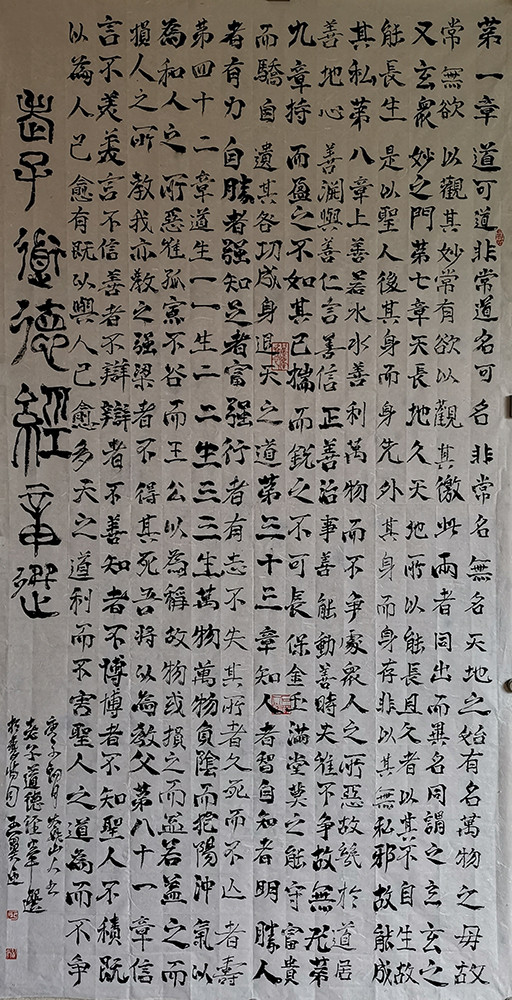 第一章道可道非常道名可名非常名無名天地之始有名萬物之母故
常無欲以觀其妙常有欲以觀其徼此兩者同出而異名同謂之玄玄之
又玄衆妙之門第七章天長地久天地所以能長且久者以其不自生故
能長生是以聖人後其身而身先外其身而身存非以其無私邪故能成
其私第八章上善若水水善利萬物而不爭處衆人之所惡故幾於道居
善地心善淵與善仁言善信正善治事善能動善時夫唯不爭故無尤第
九章持而盈之不如其已揣而銳之不可長保金玉滿堂莫之能守富貴
而驕自遺其各功成身退天之道第三十三章知人者智自知者明勝人
者有力自勝者强知足者富强行者有志不失其所者久死而不亡者壽
第四十二章道生一一生二二生三三生萬物萬物負陰而抱陽沖氣以
為和人之所惡唯孤寡不谷而王公以為稱故物或損之而益若益之而
損人之所教我亦教之强梁者不得其死吾將以為教父第八十一章信
言不美美言不信善者不辯辯者不善知者不博博者不知聖人不積既
以為人已愈有既以與人已愈多天之道利而不害聖人之道為而不爭
老子道德經章選
庚子月山人書
老子道德經章選
於書